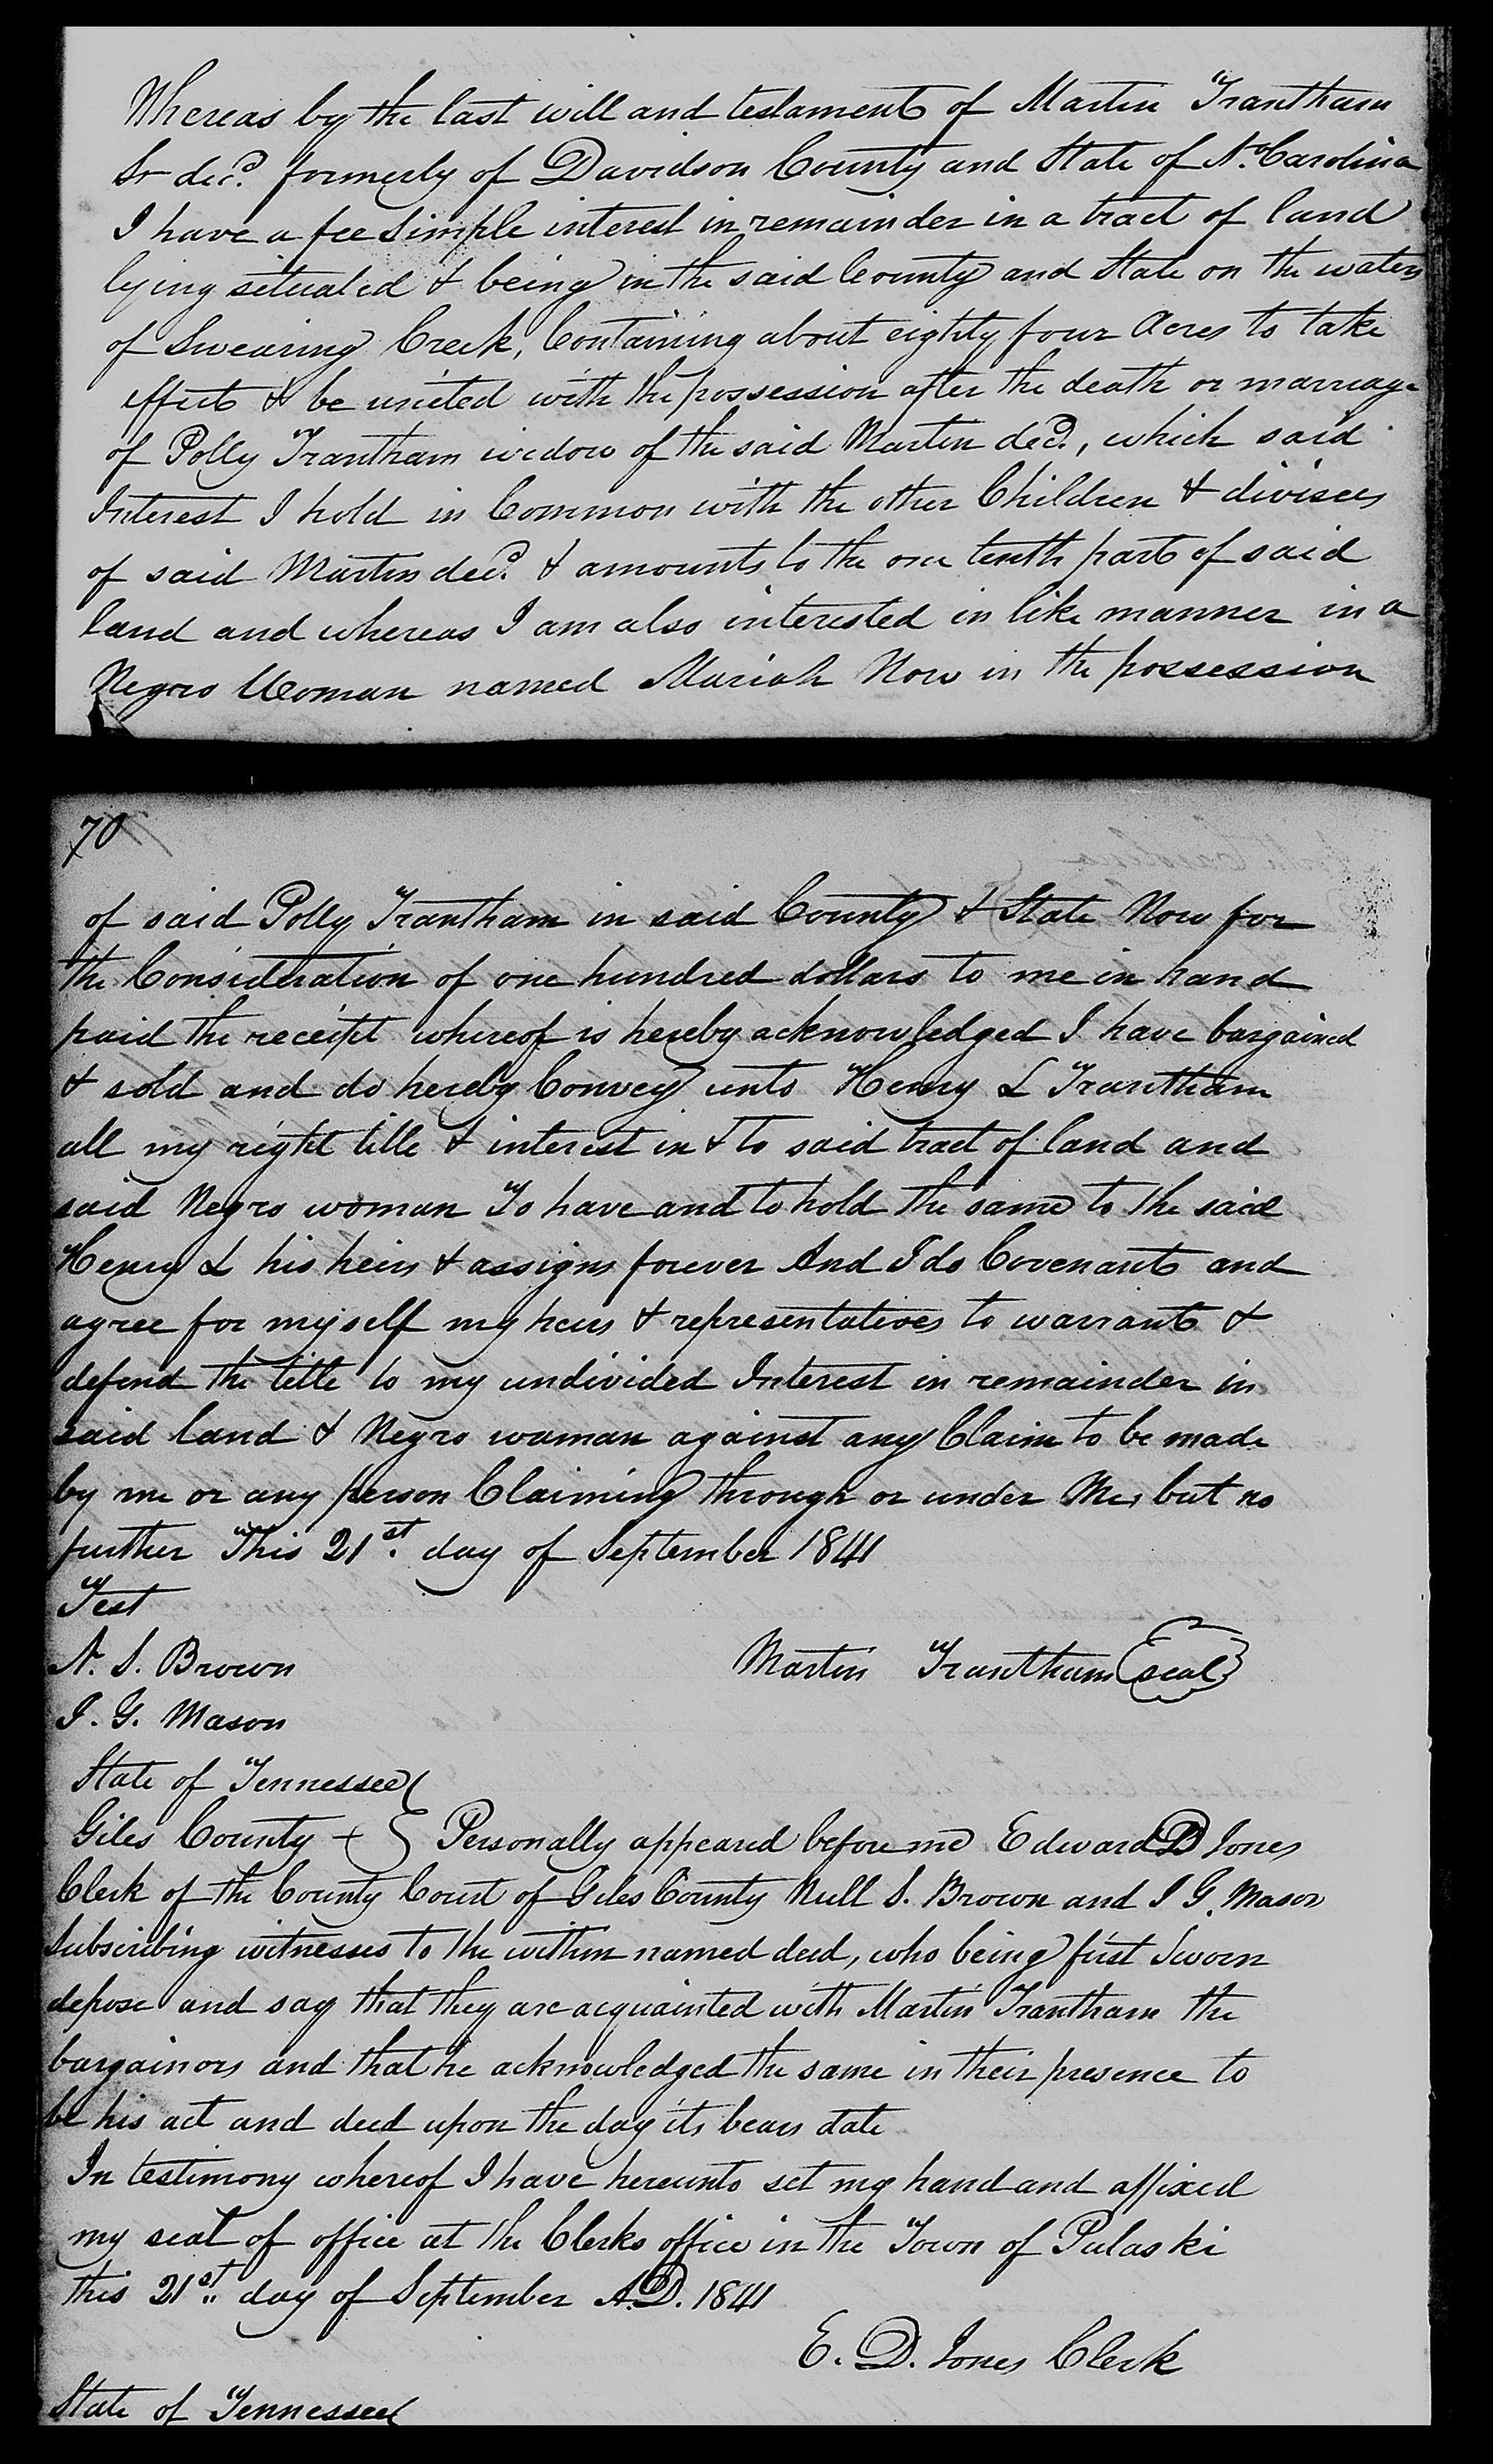 Whereas by the last will and testament of Martin Trantham
Sr decd. formerly of Davidson County and State of No. Carolina
I have a fee simple interest in remainder in a tract of land
lying situated & being in the said County and State on the waters
of Swearing Creek, Containing about eighty four Acres to take
effect & be united with the possession after the death or marriage
of Polly Trantham widow of the said Martin decd., which said
Interest I hold in Common with the other Children & divisees
of said Martin decd. & amounts to the one tenth part of said
land and whereas I am also interested in like manner in a
Negro Woman named Mariah Now in the possession
70
of said Polly Trantham in said County & State Now for
the Consideration of one hundred dollars to me in hand
paid the receipt whereof is hereby acknowledged I have bargained
& sold and do hereby Convey unto Henry L Trantham
all my right title & interest in & to said tract of land and
said Negro woman To have and to hold the same to the said
Henry L his heirs & assigns forever And I do Covenant and
agree for myself my heirs & representatives to warrant &
defend the title to my undivided Interest in remainder in
said land & Negro woman against any Claim to be made
by me or any person Claiming through or under Me, but no
further This 21st. day of September 1841
Test
N. S. Brown
Martin Trantham (seal)
I. G. Mason
State of Tennessee
Giles County Personally appeared before me Edward D Jones
Clerk of the County Court of Giles County Neill S. Brown and I G. Mason
Subscribing witnesses to the within named deed, who being first Sworn
depose and say that they are acquainted with Martin Trantham the
bargainors and that he acknowledged the same in their presence to
be his act and deed upon the day its bears date
In testimony whereof I have hereunto set my hand and affixed
my seal of office at the Clerks office in the Town of Pulaski
this 21st. day of September A.D. 1841
E. D. Jones Clerk
State of Tennessee